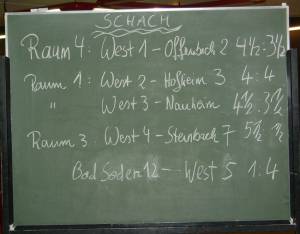 SCHACH
Raum 4: West 1 - Offenbach 2 4½:3½
Raum 1: West 2 - Hofheim 3 4:4
" West 3 - Nauheim 4½:3½
Raum 3: West 4 - Steinbach 7 5½ ½
Bad Soden 12 - West 5 1:4